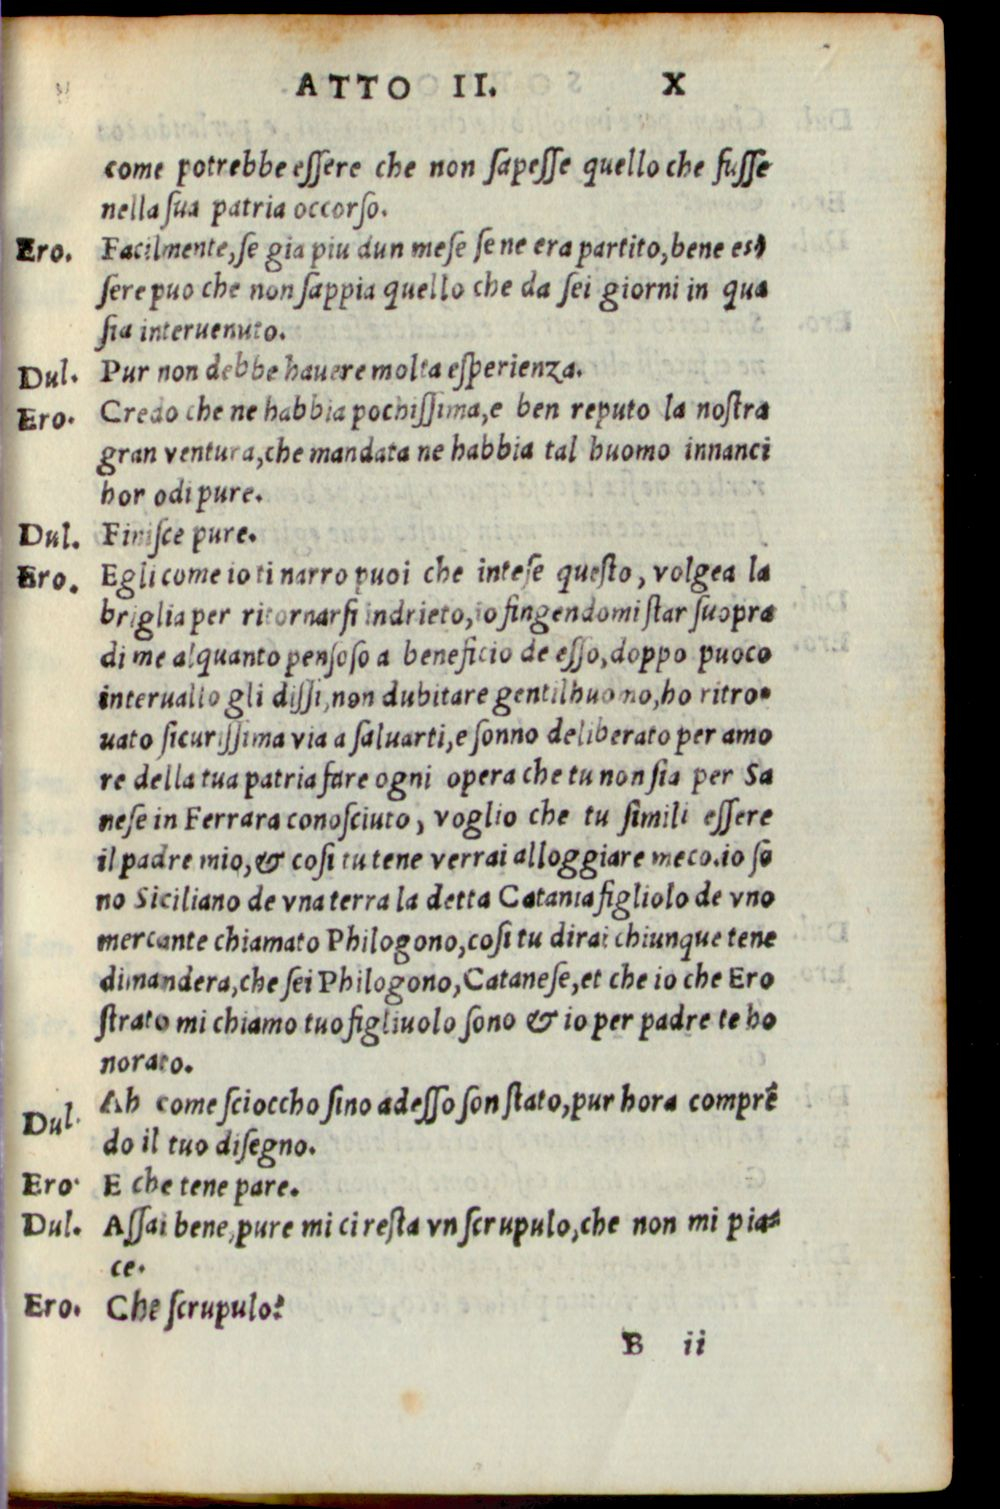 ATTO II. X
come potrebbe eſſere che non ſapeſſe quello che fuſſe
nella ſua patria occorſo.
Ero. Facilmente, ſe gia piu dun meſe ſe ne era partito, bene eſ-
ſere puo che non ſappia quello che da ſei giorni in qua
ſia interuenuto.
Dul. Pur non debbe hauere molta eſperienza.
Ero. Credo che ne habbia pochiſſima, e ben reputo la noſtra
gran ventura, che mandata ne habbia tal huomo innanci
hor odi pure.
Dul. Finiſce pure.
Ero. Egli come io ti narro puoi che inteſe queſto, volgea la
briglia per ritornarſi indrieto, io fingendomi ſtar ſuopra
di me alquanto penſoſo a beneficio de eſſo, doppo puoco
interuallo gli diſſi, non dubitare gentilhuomo, ho ritro-
uato ſicuriſſima via a ſaluarti, e ſonno deliberato per amo
re della tua patria fare ogni opera che tu non ſia per Sa
neſe in Ferrara conoſciuto, voglio che tu ſimili eſſere
il padre mio, & coſi tu tene verrai alloggiare meco. io ſo
no Siciliano de vna terra la detta Catania figliolo de vno
mercante chiamato Philogono, coſi tu dirai chiunque tene
dimandera, che ſei Philogono, Cataneſe, et che io che Ero
ſtrato mi chiamo tuo figliuolo ſono & io per padre te ho
norato.
Dul. Ah come ſcioccho ſino adeſſo ſon ſtato, pur hora comprẽ
do il tuo diſegno.
Ero. E che tene pare.
Dul. Aſſai bene, pure mi ci reſta vn ſcrupulo, che non mi pia-
ce.
Ero. Che ſcrupulo?
B ii